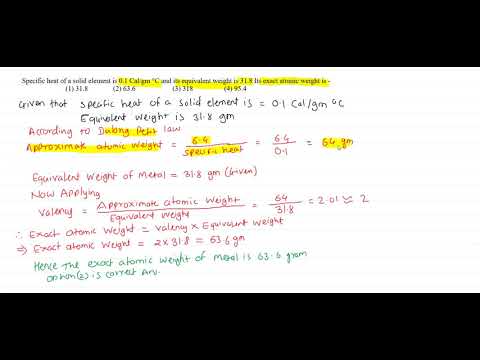 Specific heat of a solid element is 0.1 Cal/gm °C and its equivalent weight is 31.8 Its exact atomic weight is -
(1) 31.8 (2) 63.6 (3) 318 (4) 95.4
Given that specific heat of a solid element is = 0.1 Cal/gm °C
Equivalent weight is 31.8 gm
According to Dulong Petit law
Approximate atomic weight = 6.4 / specific heat = 6.4 / 0.1 = 64 gm
Equivalent Weight of Metal = 31.8 gm (Given)
Now Applying
Valency = Approximate atomic Weight / Equivalent Weight = 64 / 31.8 = 2.01 ≈ 2
∴ Exact atomic Weight = Valency × Equivalent Weight
⇒ Exact atomic Weight = 2 × 31.8 = 63.6 gm
Hence The exact atomic weight of metal is 63.6 gram
option(2) is correct Ans.